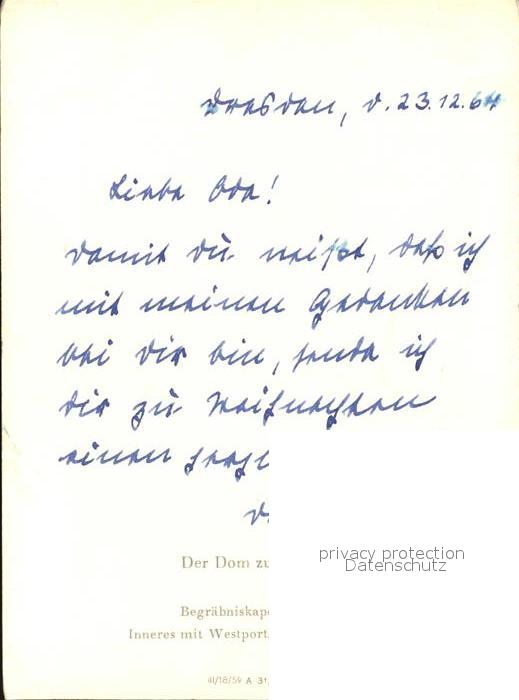 Dresden, d. 23.12.64
Liebe Oda!
Damit du weißt, daß ich
mit meinen Gedanken
bei dir bin, sende ich
dir zu Weihnachten
einen
Der Dom zu
Begräbniskape
Inneres mit Westport
III/18/59 A 31
privacy protection
Datenschutz